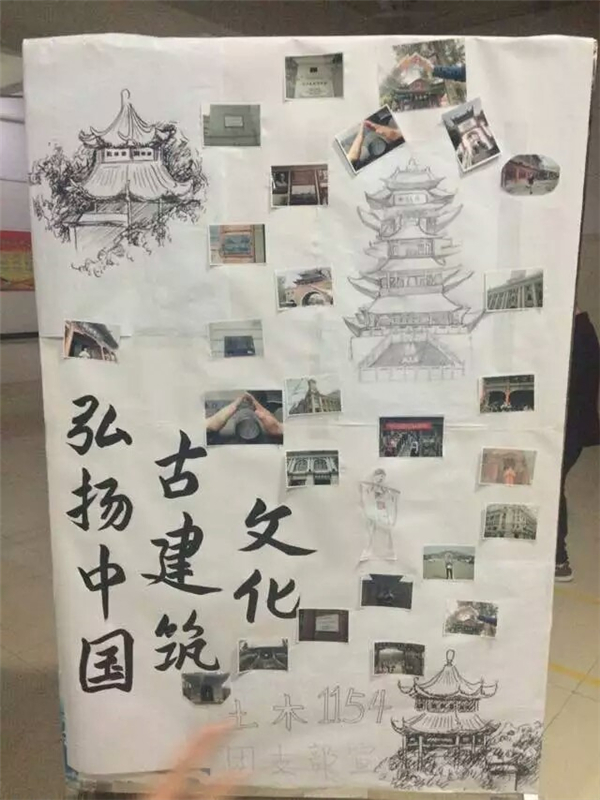 弘扬中国
古建筑
文化
土木1154
团支部宣